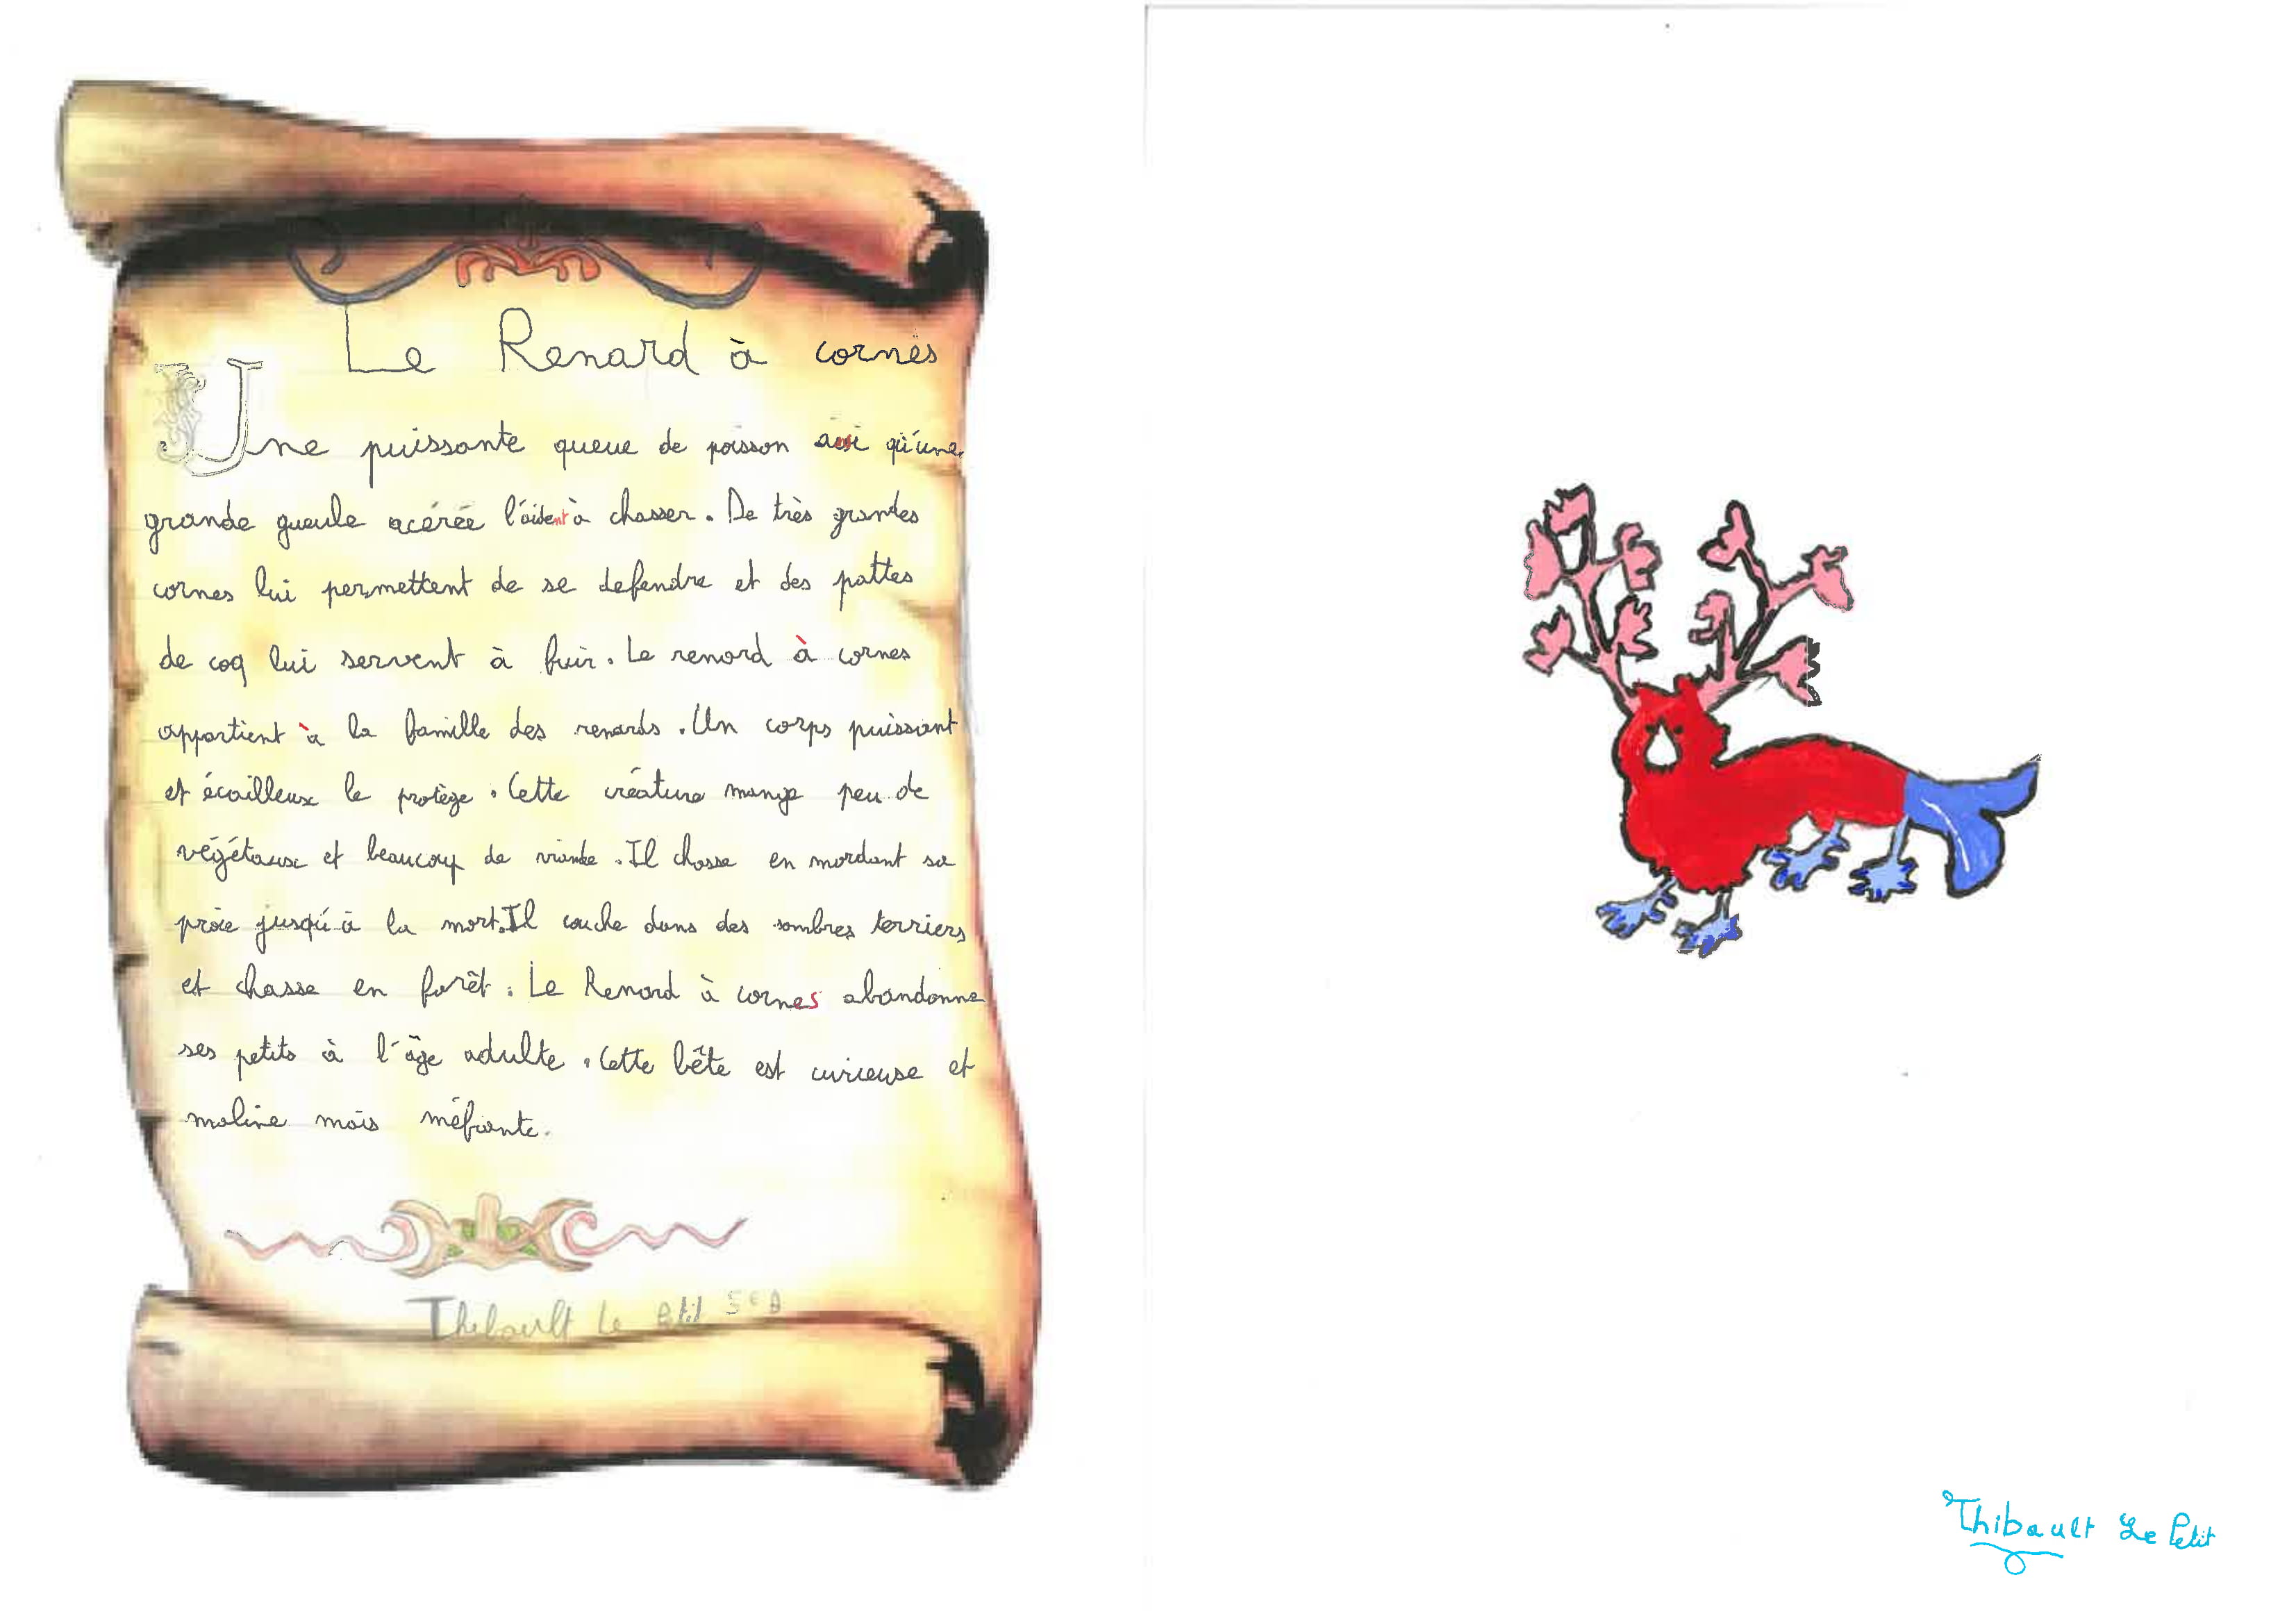 Le Renard à cornes
Une puissante queue de poisson aussi qu'une
grande gueule acérée l'aident à chasser. De très grandes
cornes lui permettent de se defendre et des pattes
de coq lui servent à fuir. Le renard à cornes
appartient à la famille des renards. Un corps puissant
et écailleux le protège. Cette créature mange peu de
végétaux et beaucoup de viande. Il chasse en mordant sa
proie jusqu'à la mort. Il couche dans des sombres terriers
et chasse en forêt. Le Renard à cornes abandonne
ses petits à l'âge adulte. Cette bête est curieuse et
maline mais méfiante.
Thibault Le Petit 5eA
Thibault Le Petit